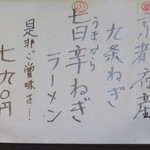 京都府産
九条ねぎ
うまから
旨辛ねぎ
ラーメン
是非ご賞味を!
七九〇円